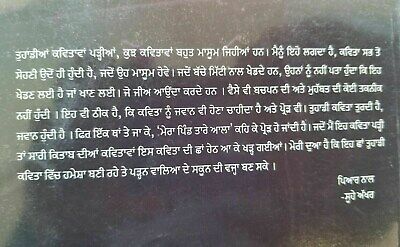 ਤੁਹਾਡੀਆਂ ਕਵਿਤਾਵਾਂ ਪੜ੍ਹੀਆਂ, ਕੁਝ ਕਵਿਤਾਵਾਂ ਬਹੁਤ ਮਾਸੂਮ ਜਿਹੀਆਂ ਹਨ। ਮੈਨੂੰ ਇਹੋ ਲਗਦਾ ਹੈ, ਕਵਿਤਾ ਸਭ ਤੋਂ
ਸੋਹਣੀ ਉਦੋਂ ਹੀ ਹੁੰਦੀ ਹੈ, ਜਦੋਂ ਉਹ ਮਾਸੂਮ ਹੋਵੇ। ਜਦੋਂ ਬੱਚੇ ਮਿੱਟੀ ਨਾਲ ਖੇਡਦੇ ਹਨ, ਉਹਨਾਂ ਨੂੰ ਨਹੀਂ ਪਤਾ ਹੁੰਦਾ ਕਿ ਇਹ
ਖੇਡਣ ਲਈ ਹੈ ਜਾਂ ਖਾਣ ਲਈ। ਜੋ ਜੀਅ ਆਉਂਦਾ ਕਰਦੇ ਹਨ। ਵੈਸੇ ਵੀ ਬਚਪਨ ਦੀ ਅਤੇ ਮੁਹੱਬਤ ਦੀ ਕੋਈ ਤਕਨੀਕ
ਨਹੀਂ ਹੁੰਦੀ । ਇਹ ਵੀ ਠੀਕ ਹੈ, ਕਿ ਕਵਿਤਾ ਨੂੰ ਜਵਾਨ ਵੀ ਹੋਣਾ ਚਾਹੀਦਾ ਹੈ ਅਤੇ ਪ੍ਰੌੜ ਵੀ। ਤੁਹਾਡੀ ਕਵਿਤਾ ਤੁਰਦੀ ਹੈ,
ਜਵਾਨ ਹੁੰਦੀ ਹੈ । ਫਿਰ ਇੱਕ ਥਾਂ ਤੇ ਜਾ ਕੇ, 'ਮੇਰਾ ਪਿੰਡ ਤਾਰੇ ਆਲਾ' ਕਹਿ ਕੇ ਪ੍ਰੌੜ ਹੋ ਜਾਂਦੀ ਹੈ। ਜਦੋਂ ਮੈਂ ਇਹ ਕਵਿਤਾ ਪੜ੍ਹੀ
ਤਾਂ ਸਾਰੀ ਕਿਤਾਬ ਦੀਆਂ ਕਵਿਤਾਵਾਂ ਇਸ ਕਵਿਤਾ ਦੀ ਛਾਂ ਹੇਠ ਆ ਕੇ ਖੜ੍ਹ ਗਈਆਂ। ਮੇਰੀ ਦੁਆ ਹੈ ਕਿ ਇਹ ਛਾਂ ਤੁਹਾਡੀ
ਕਵਿਤਾ ਵਿੱਚ ਹਮੇਸ਼ਾ ਬਣੀ ਰਹੇ ਤੇ ਪੜ੍ਹਨ ਵਾਲਿਆ ਦੇ ਸਕੂਨ ਦੀ ਵਜ੍ਹਾ ਬਣ ਸਕੇ ।
ਪਿਆਰ ਨਾਲ
-ਸੂਹੇ ਅੱਖਰ